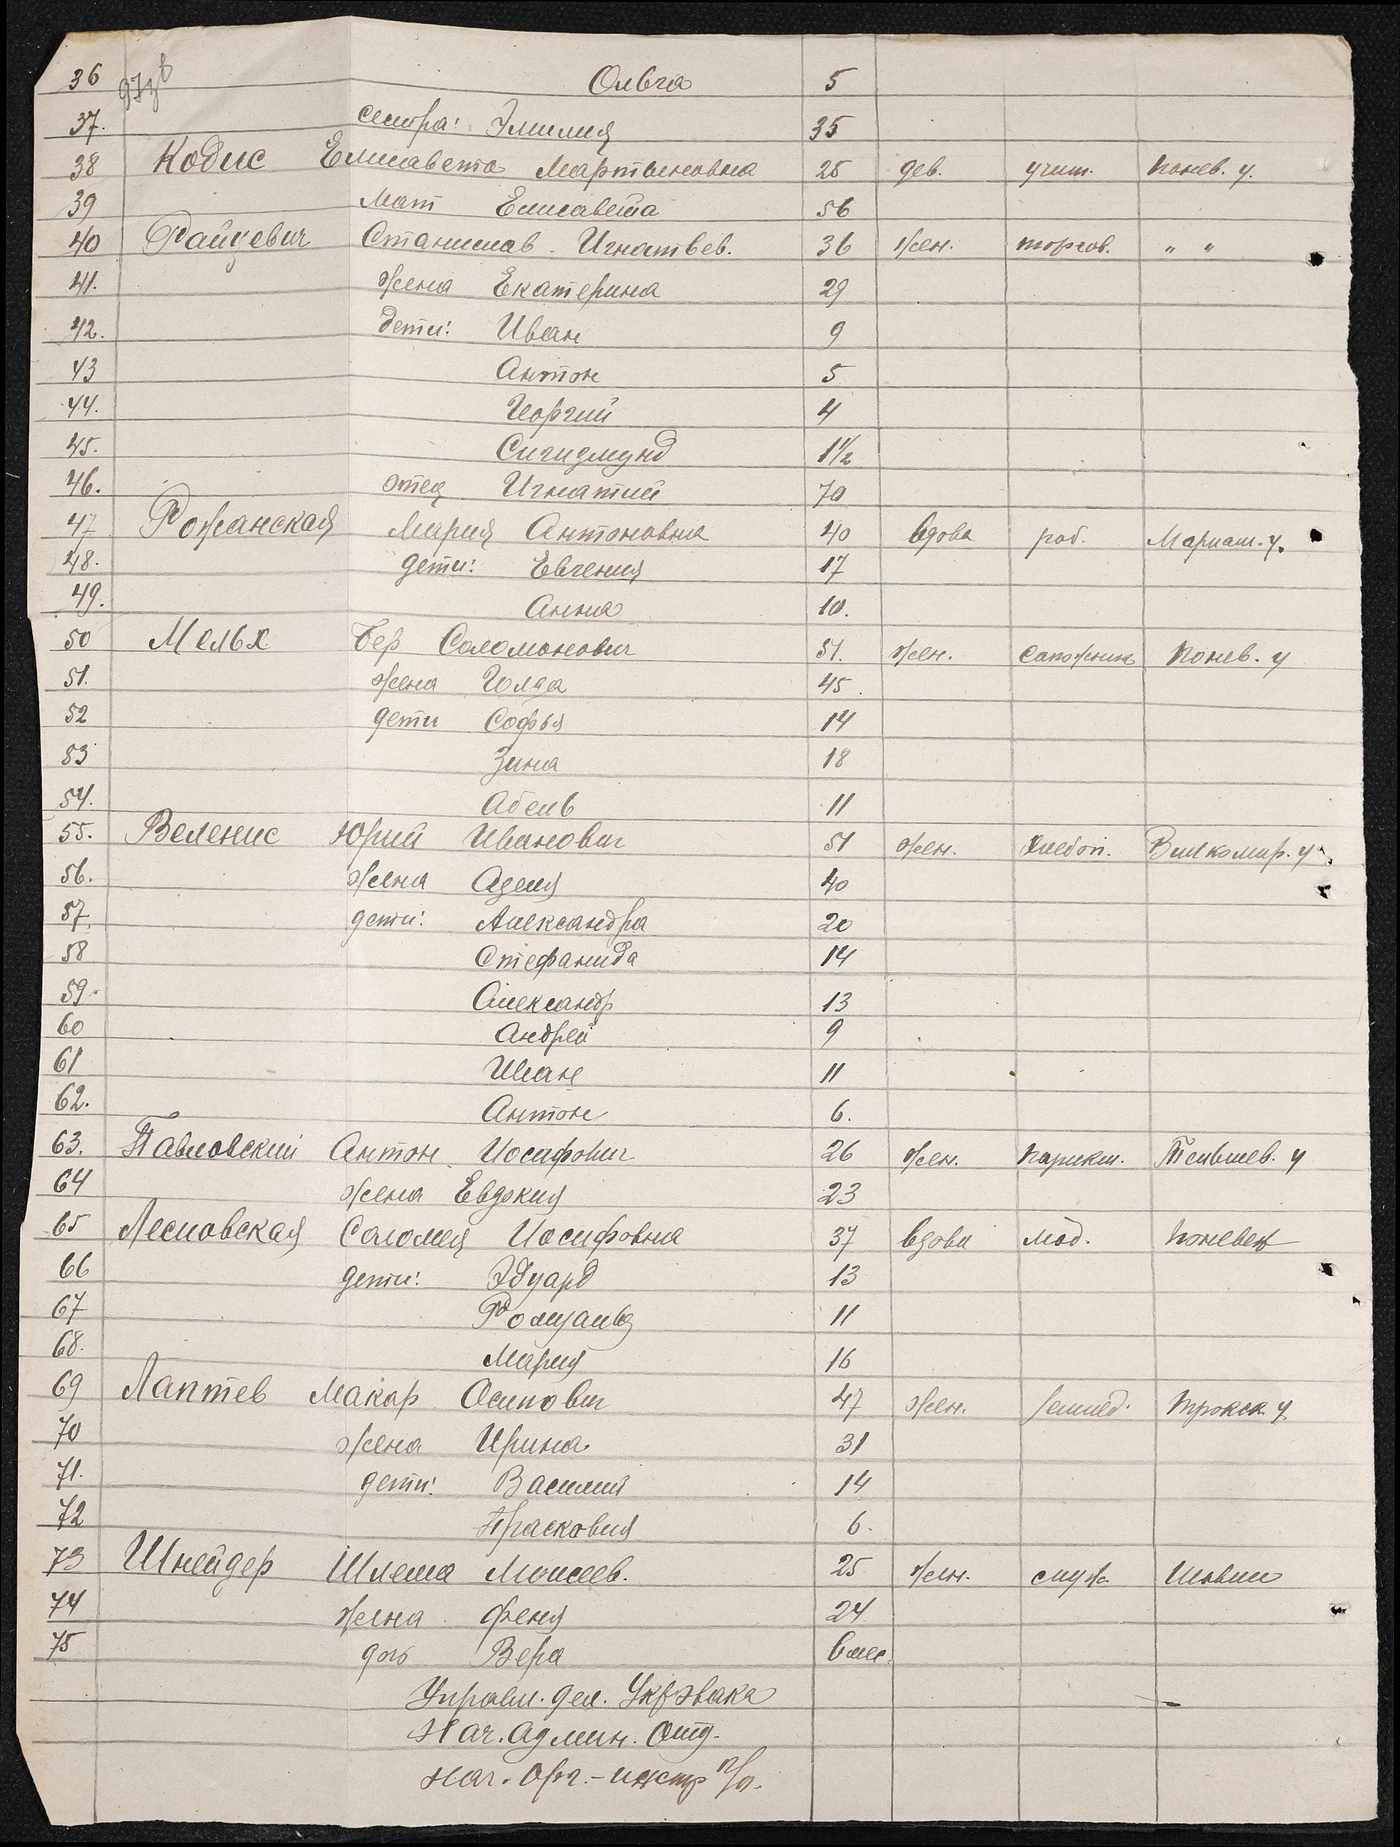 36 Ольга 5
37. сестра: Эмилия 35
38 Кодис Елисавета Мартыновна 25 дев. учит. Понев. у.
39 Мат Елисавета 56
40 Райцевич Станислав Игнатьев. 36 жен. торгов. " "
41. жена Екатерина 29
42. дети: Иван 9
43 Антон 5
44. Иоргий 4
45. Сигизмунд 1 1/2
46. отец Игнатий 70
47 Рожанская Мария Антоновна 40 вдова раб. Мариам. у.
48. дети: Евгения 17
49. Анна 10.
50 Мельх Бер Соломонович 51. жен. сапожник Понев. у
51. жена Голда 45.
52 дети Софья 14
53 Зина 18
54. Абель 11
55. Веленис Юрий Иванович 51 жен. хлебоп. Вилкомир. у.
56. жена Аделя 40
57. дети: Александра 20
58 Стефанида 14
59. Александр 13
60 Андрей 9
61 Иван 11
62. Антон 6.
63. Павловский Антон Иосифович 26 жен. парикм. Тельшев. у
64 жена Евдокия 23
65 Лесновская Соломея Иосифовна 37 вдова мод. Поневеж
66 дети: Эдуард 13
67 Ромуальд 11
68. Мария 16
69 Лаптев Макар Осипович 47 жен. земл. Трокск. у
70 жена Ирина 31
71. дети: Василий 14
72 Прасковия 6.
73 Шнейдер Шлема Моисеев. 25 жен. служ. Шавли
74 жена Феня 24
75 дочь Вера 6 мес.
Управл. дел.
Нач. Админ. Отд.
Нач. Орг. - инстр п/о.